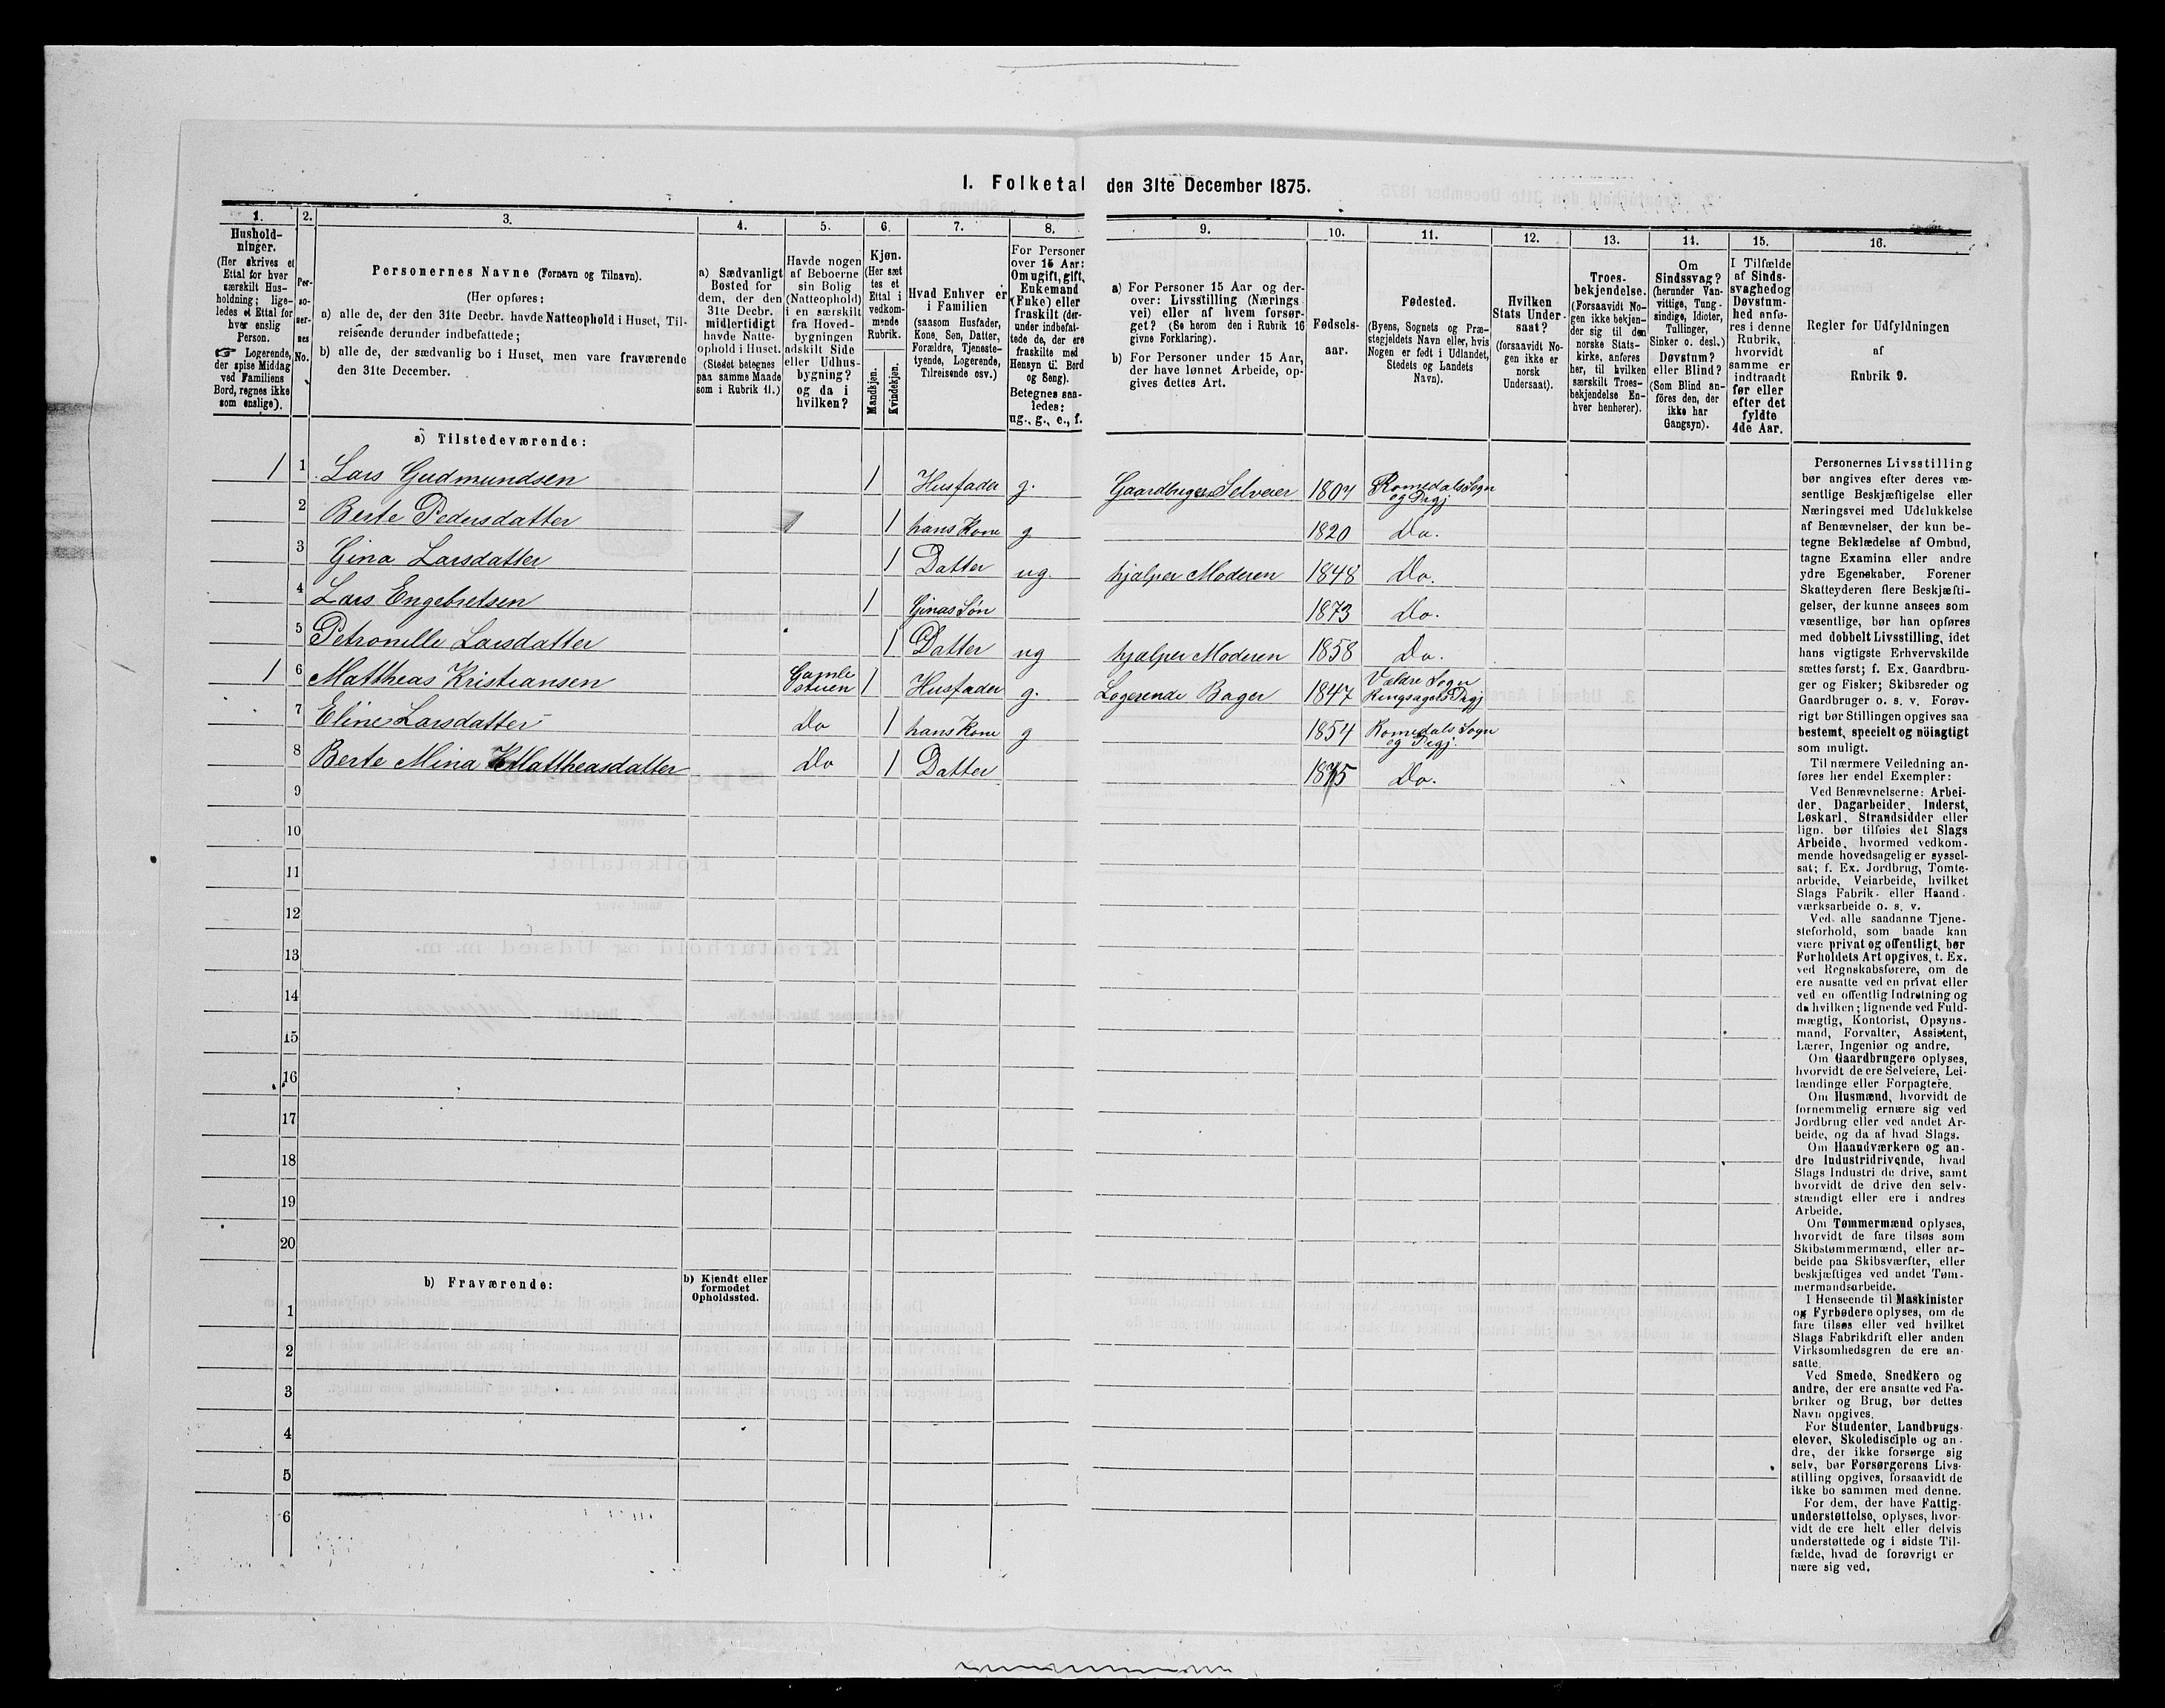 1. Folketal den 31te December 1875.
1.
Hushold-
ninger.
(Her skrives et
Ettal for hver
særskilt Hus-
holdning; lige-
ledes et Ettal for
hver enslig
Person.
☞ Logerende,
der spise Middag
ved Familiens
Bord, regnes ikke
som enslige).
2.
Per-
so-
ner-
nes
No.
3.
Personernes Navne (Fornavn og Tilnavn).
(Her opføres:
a) alle de, der den 31te Decbr. havde Natteophold i Huset, Til-
reisende derunder indbefattede;
b) alle de, der sædvanlig bo i Huset, men vare fraværende
den 31te December.
4.
a) Sædvanligt
Bosted for
dem, der den
31te Decbr.
midlertidigt
havde Natte-
ophold i Huset.
(Stedet betegnes
paa samme Maade
som i Rubrik 11.)
5.
Havde nogen
af Beboerne
sin Bolig
(Natteophold)
i en særskilt
fra Hoved-
bygningen
adskilt Side
eller Udhus-
bygning?
og da i
hvilken?
6.
Kjøn.
(Her sæt
tes et
Ettal i
vedkom-
mende
Rubrik.
Mandkjøn.
Kvindekjøn.
7.
Hvad Enhver er
i Familien
(saasom Husfader,
Kone, Søn, Datter,
Forældre, Tjeneste-
tyende, Logerende,
Tilreisende osv.)
8.
For Personer
over 15 Aar:
Om ugift, gift,
Enkemand
(Enke) eller
fraskilt (der-
under indbefat-
tede de, der ere
fraskilte med
Hensyn til Bord
og Seng).
Betegnes saa-
ledes:
ug., g., e., f.
9.
a) For Personer 15 Aar og der-
over: Livsstilling (Nærings
vei) eller af hvem forsør-
get? (Se herom den i Rubrik 16
givne Forklaring).
b) For Personer under 15 Aar,
der have lønnet Arbeide, op-
gives dettes Art.
10.
Fødsels-
aar.
11.
Fødested.
(Byens, Sognets og Præ-
stegjeldets Navn eller, hvis
Nogen er født i Udlandet,
Stedets og Landets
Navn).
12.
Hvilken
Stats Under-
saat?
(forsaavidt No-
gen ikke er
norsk
Undersaat).
13.
Troes-
bekjendelse.
(Forsaavidt No-
gen ikke bekjen-
der sig til den
norske Stats-
kirke, anføres
her, til hvilken
særskilt Troes-
bekjendelse En-
hver henhører).
14.
Om
Sindssvag?
(herunder Van-
vittige, Tung-
sindige, Idioter,
Tullinger,
Sinker o. desl.)
Døvstum?
eller Blind?
(Som Blind an-
føres den, der
ikke har
Gangsyn).
15.
I Tilfælde
af Sinds-
svaghed og
Døvstum-
hed anfø-
res i denne
Rubrik,
hvorvidt
samme er
indtraadt
før eller
efter det
fyldte
4de Aar.
16.
Regler for Udfyldningen
af
Rubrik 9.
a) Tilstedeværende:
1 1 Lars Gudmundsen 1 Husfader g. Gaardbruger Selveier 1807 Romedals Sogn og Prgj
2 Berte Pedersdatter 1 hans Kone g 1820 Do.
3 Gina Larsdatter 1 Datter ug. hjælper Moderen 1848 Do.
4 Lars Engebretsen 1 Ginas Søn 1873 Do.
5 Petronelle Larsdatter 1 Datter ug hjælper Moderen 1858 Do.
1 6 Mattheas Kristiansen Gamle stuen 1 Husfader g. Logerende Bager 1847 Veldre Sogn Ringsagers Prgj
7 Eline Larsdatter Do 1 hans Kone g 1854 Romedals Sogn og Prgj.
8 Berte Mina Mattheasdatter Do 1 Datter 1875 Do.
9
10
11
12
13
14
15
16
17
18
19
20
b) Fraværende:
b) Kjendt eller
formodet
Opholdssted.
1
2
3
4
5
6
Personernes Livsstilling
bør angives efter deres væ-
sentlige Beskjæftigelse eller
Næringsvei med Udelukkelse
af Benævnelser, der kun be-
tegne Beklædelse af Ombud,
tagne Examina eller andre
ydre Egenskaber. Forener
Skatteyderen flere Beskjæfti-
gelser, der kunne ansees som
væsentlige, bør han opføres
med dobbelt Livsstilling, idet
hans vigtigste Erhvervskilde
sættes først; f. Ex. Gaardbru-
ger og Fisker; Skibsreder og
Gaardbruger o. s. v. Forøv-
rigt bør Stillingen opgives saa
bestemt, specielt og nöiagtigt
som muligt.
Til nærmere Veiledning an-
føres her endel Exempler:
Ved Benævnelserne: Arbei-
der, Dagarbeider, Inderst,
Løskarl, Strandsidder eller
lign. bør tilføies det Slags
Arbeide, hvormed vedkom-
mende hovedsagelig er syssel-
sat; f. Ex. Jordbrug, Tomte-
arbeide, Veiarbeide, hvilket
Slags Fabrik- eller Haand-
værksarbeide o. s. v.
Ved alle saadanne Tjene-
steforhold, som baade kan
være privat og offentligt, bør
Forholdets Art opgives, t. Ex.
ved Regnskabsførere, om de
ere ansatte ved en privat eller
ved en offentlig Indretning og
da hvilken; lignende ved Fuld-
mægtig, Kontorist, Opsyns-
mand, Forvalter, Assistent,
Lærer, Ingeniør og andre.
Om Gaardbrugere oplyses,
hvorvidt de ere Selveiere, Lei-
lændinge eller Forpagtere.
Om Husmænd, hvorvidt de
fornemmelig ernære sig ved
Jordbrug eller ved andet Ar-
beide, og da af hvad Slags.
Om Haandværkere og an-
dre Industridrivende, hvad
Slags Industri de drive, samt
hvorvidt de drive den selv-
stændigt eller ere i andres
Arbeide.
Om Tømmermænd oplyses,
hvorvidt de fare tilsøs som
Skibstømmermænd, eller ar-
beide paa Skibsværfter, eller
beskjæftiges ved andet Tøm-
mermandsarbeide.
I Henseende til Maskinister
og Fyrbødere oplyses, om de
fare tilsøs eller ved hvilket
Slags Fabrikdrift eller anden
Virksomhedsgren de ere an-
satte.
Ved Smede, Snedkere og
andre, der ere ansatte ved Fa-
briker og Brug, bør dettes
Navn opgives.
For Studenter, Landbrugs-
elever, Skoledisciple og an-
dre, der ikke forsørge sig
selv, bør Forsørgerens Livs-
stilling opgives, forsaavidt de
ikke bo sammen med denne.
For dem, der have Fattig-
understøttelse, oplyses, hvor-
vidt de ere helt eller delvis
understøttede og i sidste Til-
fælde, hvad de forøvrigt er
nære sig ved.